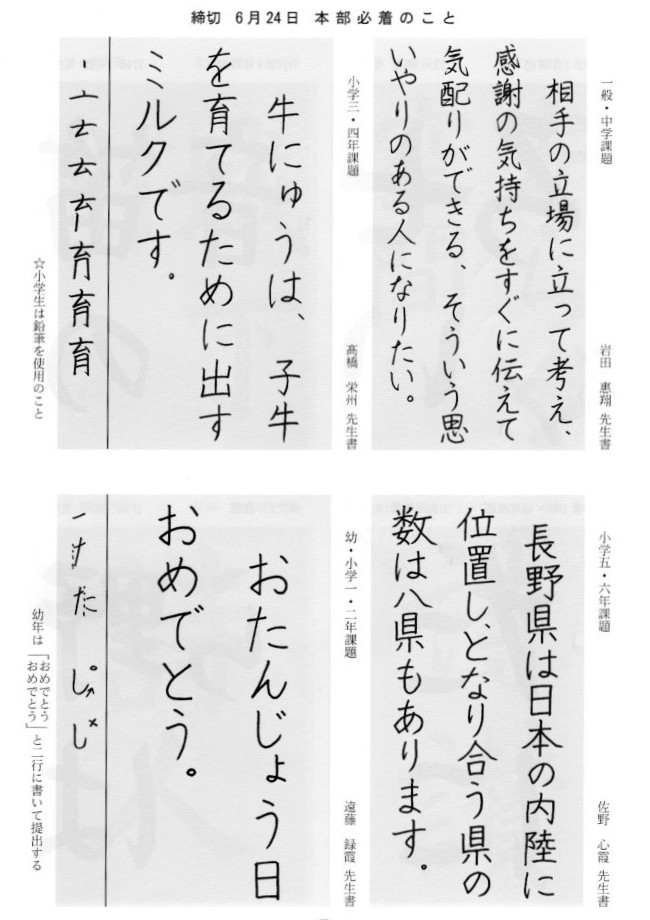 締切 6月24日 本部必着のこと
一般・中学課題
岩田 恵翔 先生書
相手の立場に立って考え、
感謝の気持ちをすぐに伝えて
気配りができる、そういう思
いやりのある人になりたい。
小学三・四年課題
髙橋 栄州 先生書
牛にゅうは、子牛
を育てるために出す
ミルクです。
亠
云
育
育
育
☆小学生は鉛筆を使用のこと
小学五・六年課題
佐野 心霞 先生書
長野県は日本の内陸に
位置し、となり合う県の
数は八県もあります。
幼・小学一・二年課題
遠藤 録霞 先生書
おたんじょう日
おめでとう。
一 ナ た し じ
幼年は「おめでとう
おめでとう」と二行に書いて提出する